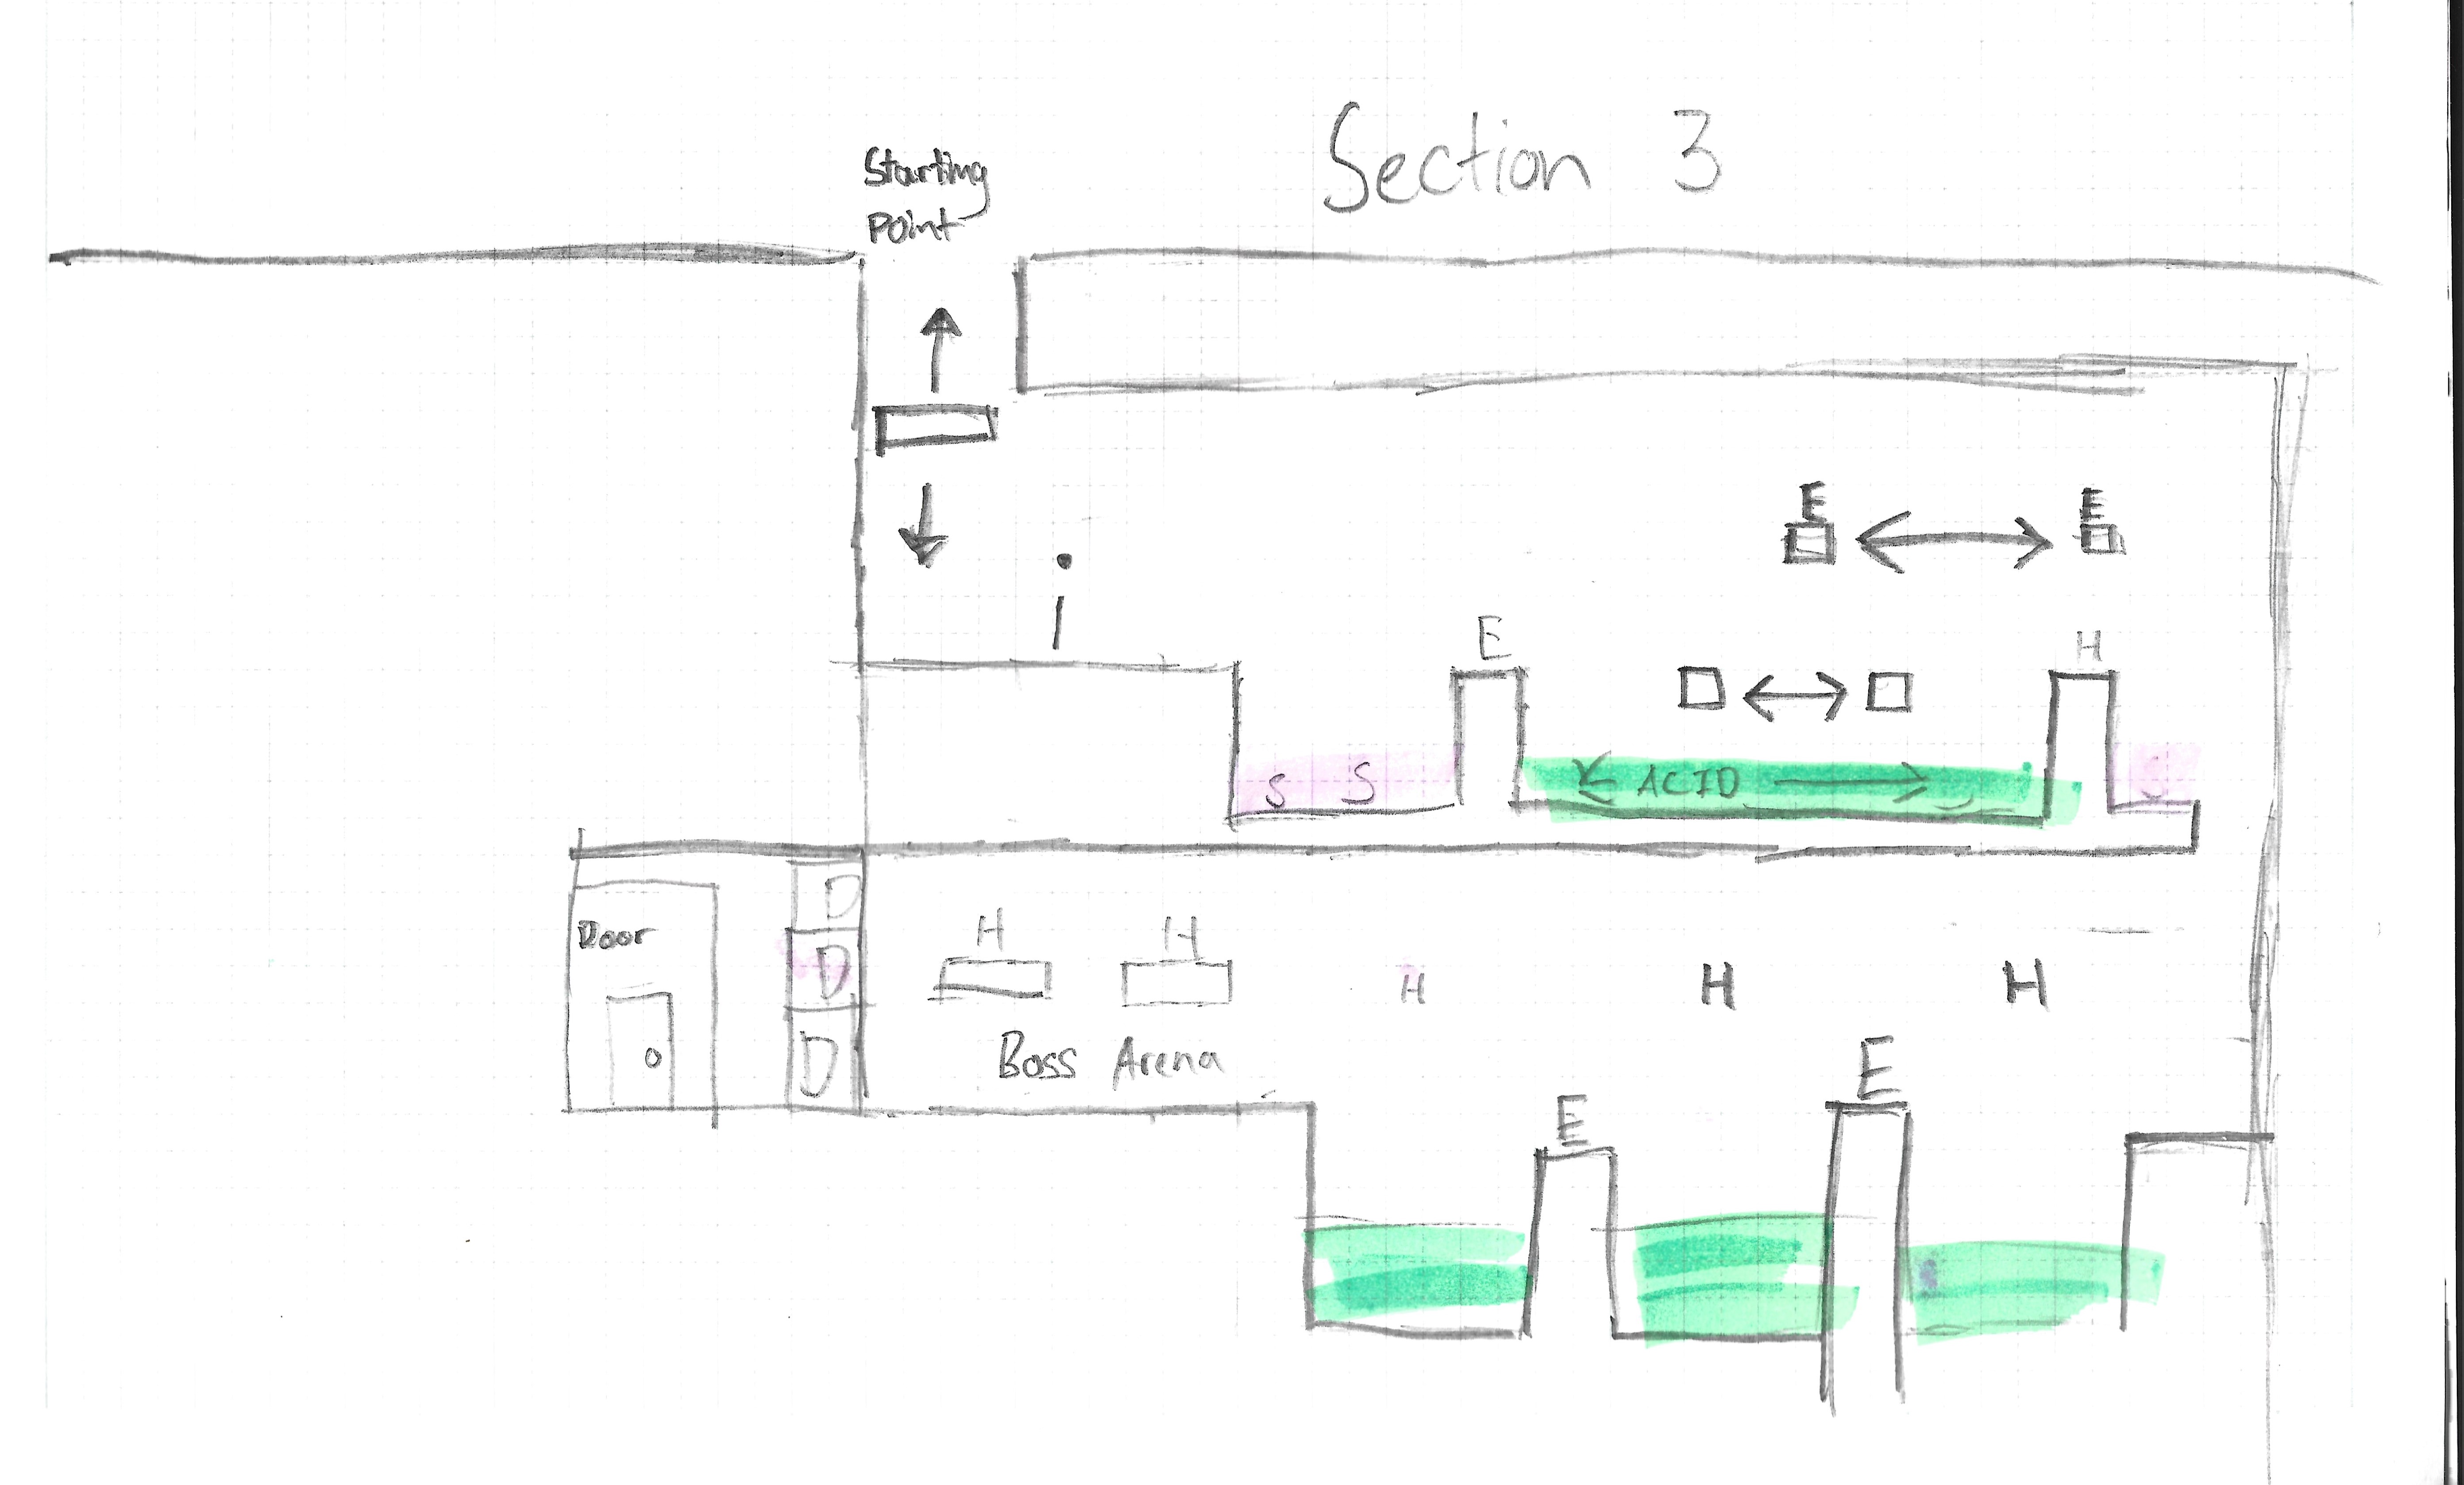 Section 3
Starting
Point
i
E E
E H
S S ACID S
D
Door
D
H H H H H
D
Boss Arena
E
E